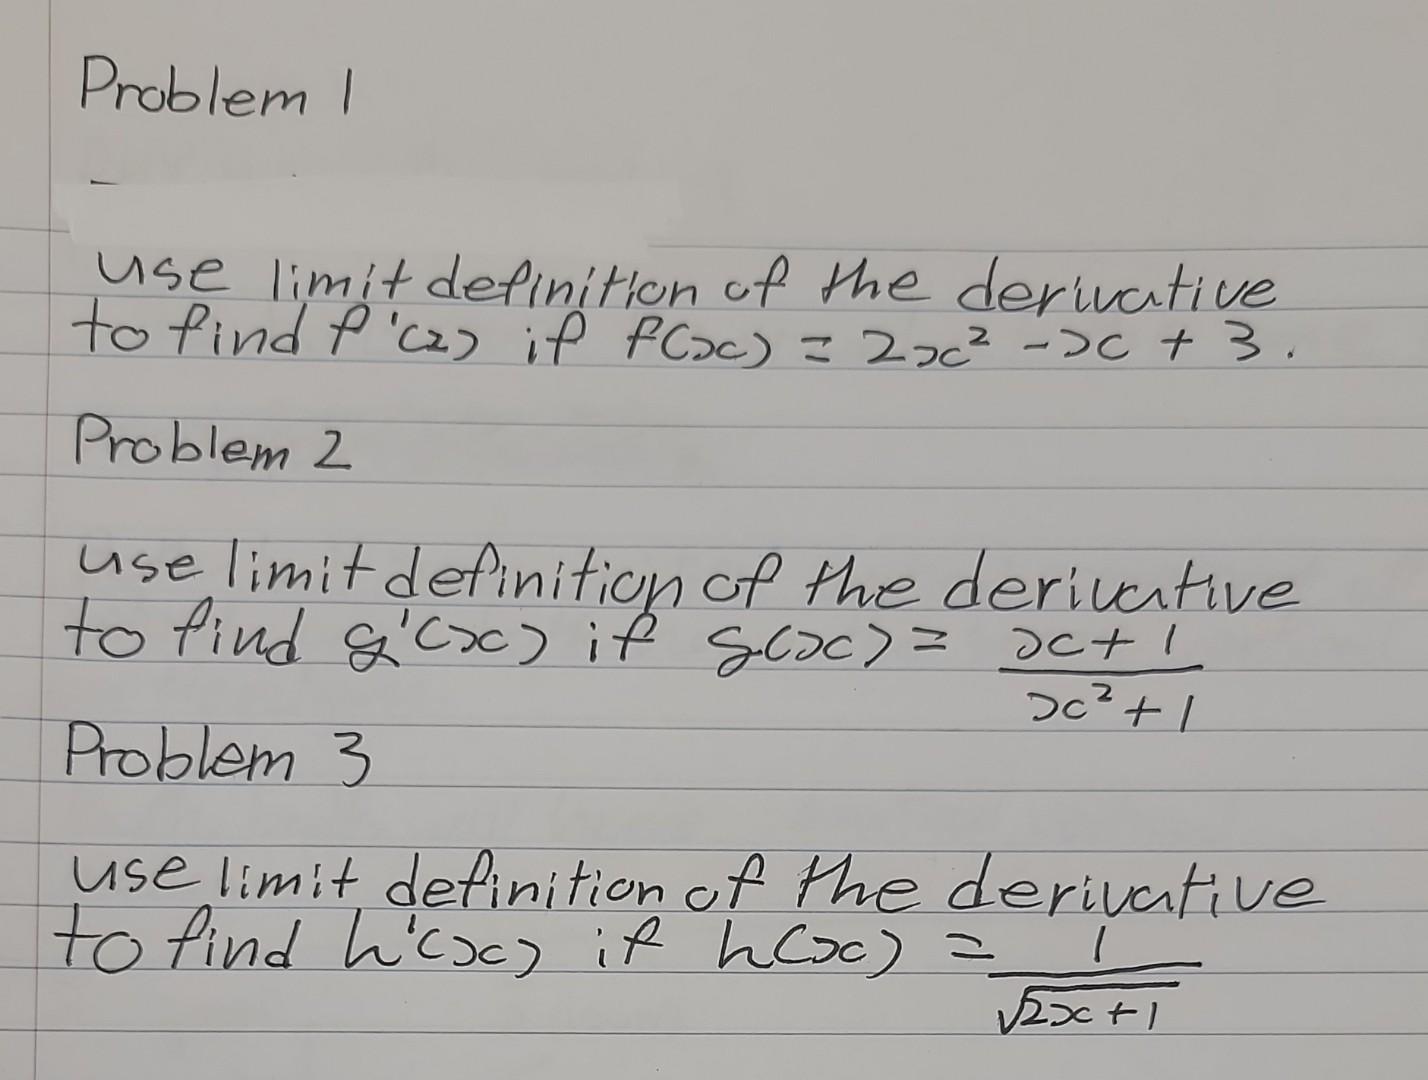 Problem 1
use limit definition of the derivative
to find f'(2) if f(x) = 2x² - x + 3.
Problem 2
use limit definition of the derivative
to find g'(x) if g(x) = (x + 1)/(x² + 1)
Problem 3
use limit definition of the derivative
to find h'(x) if h(x) = 1/√(2x + 1)